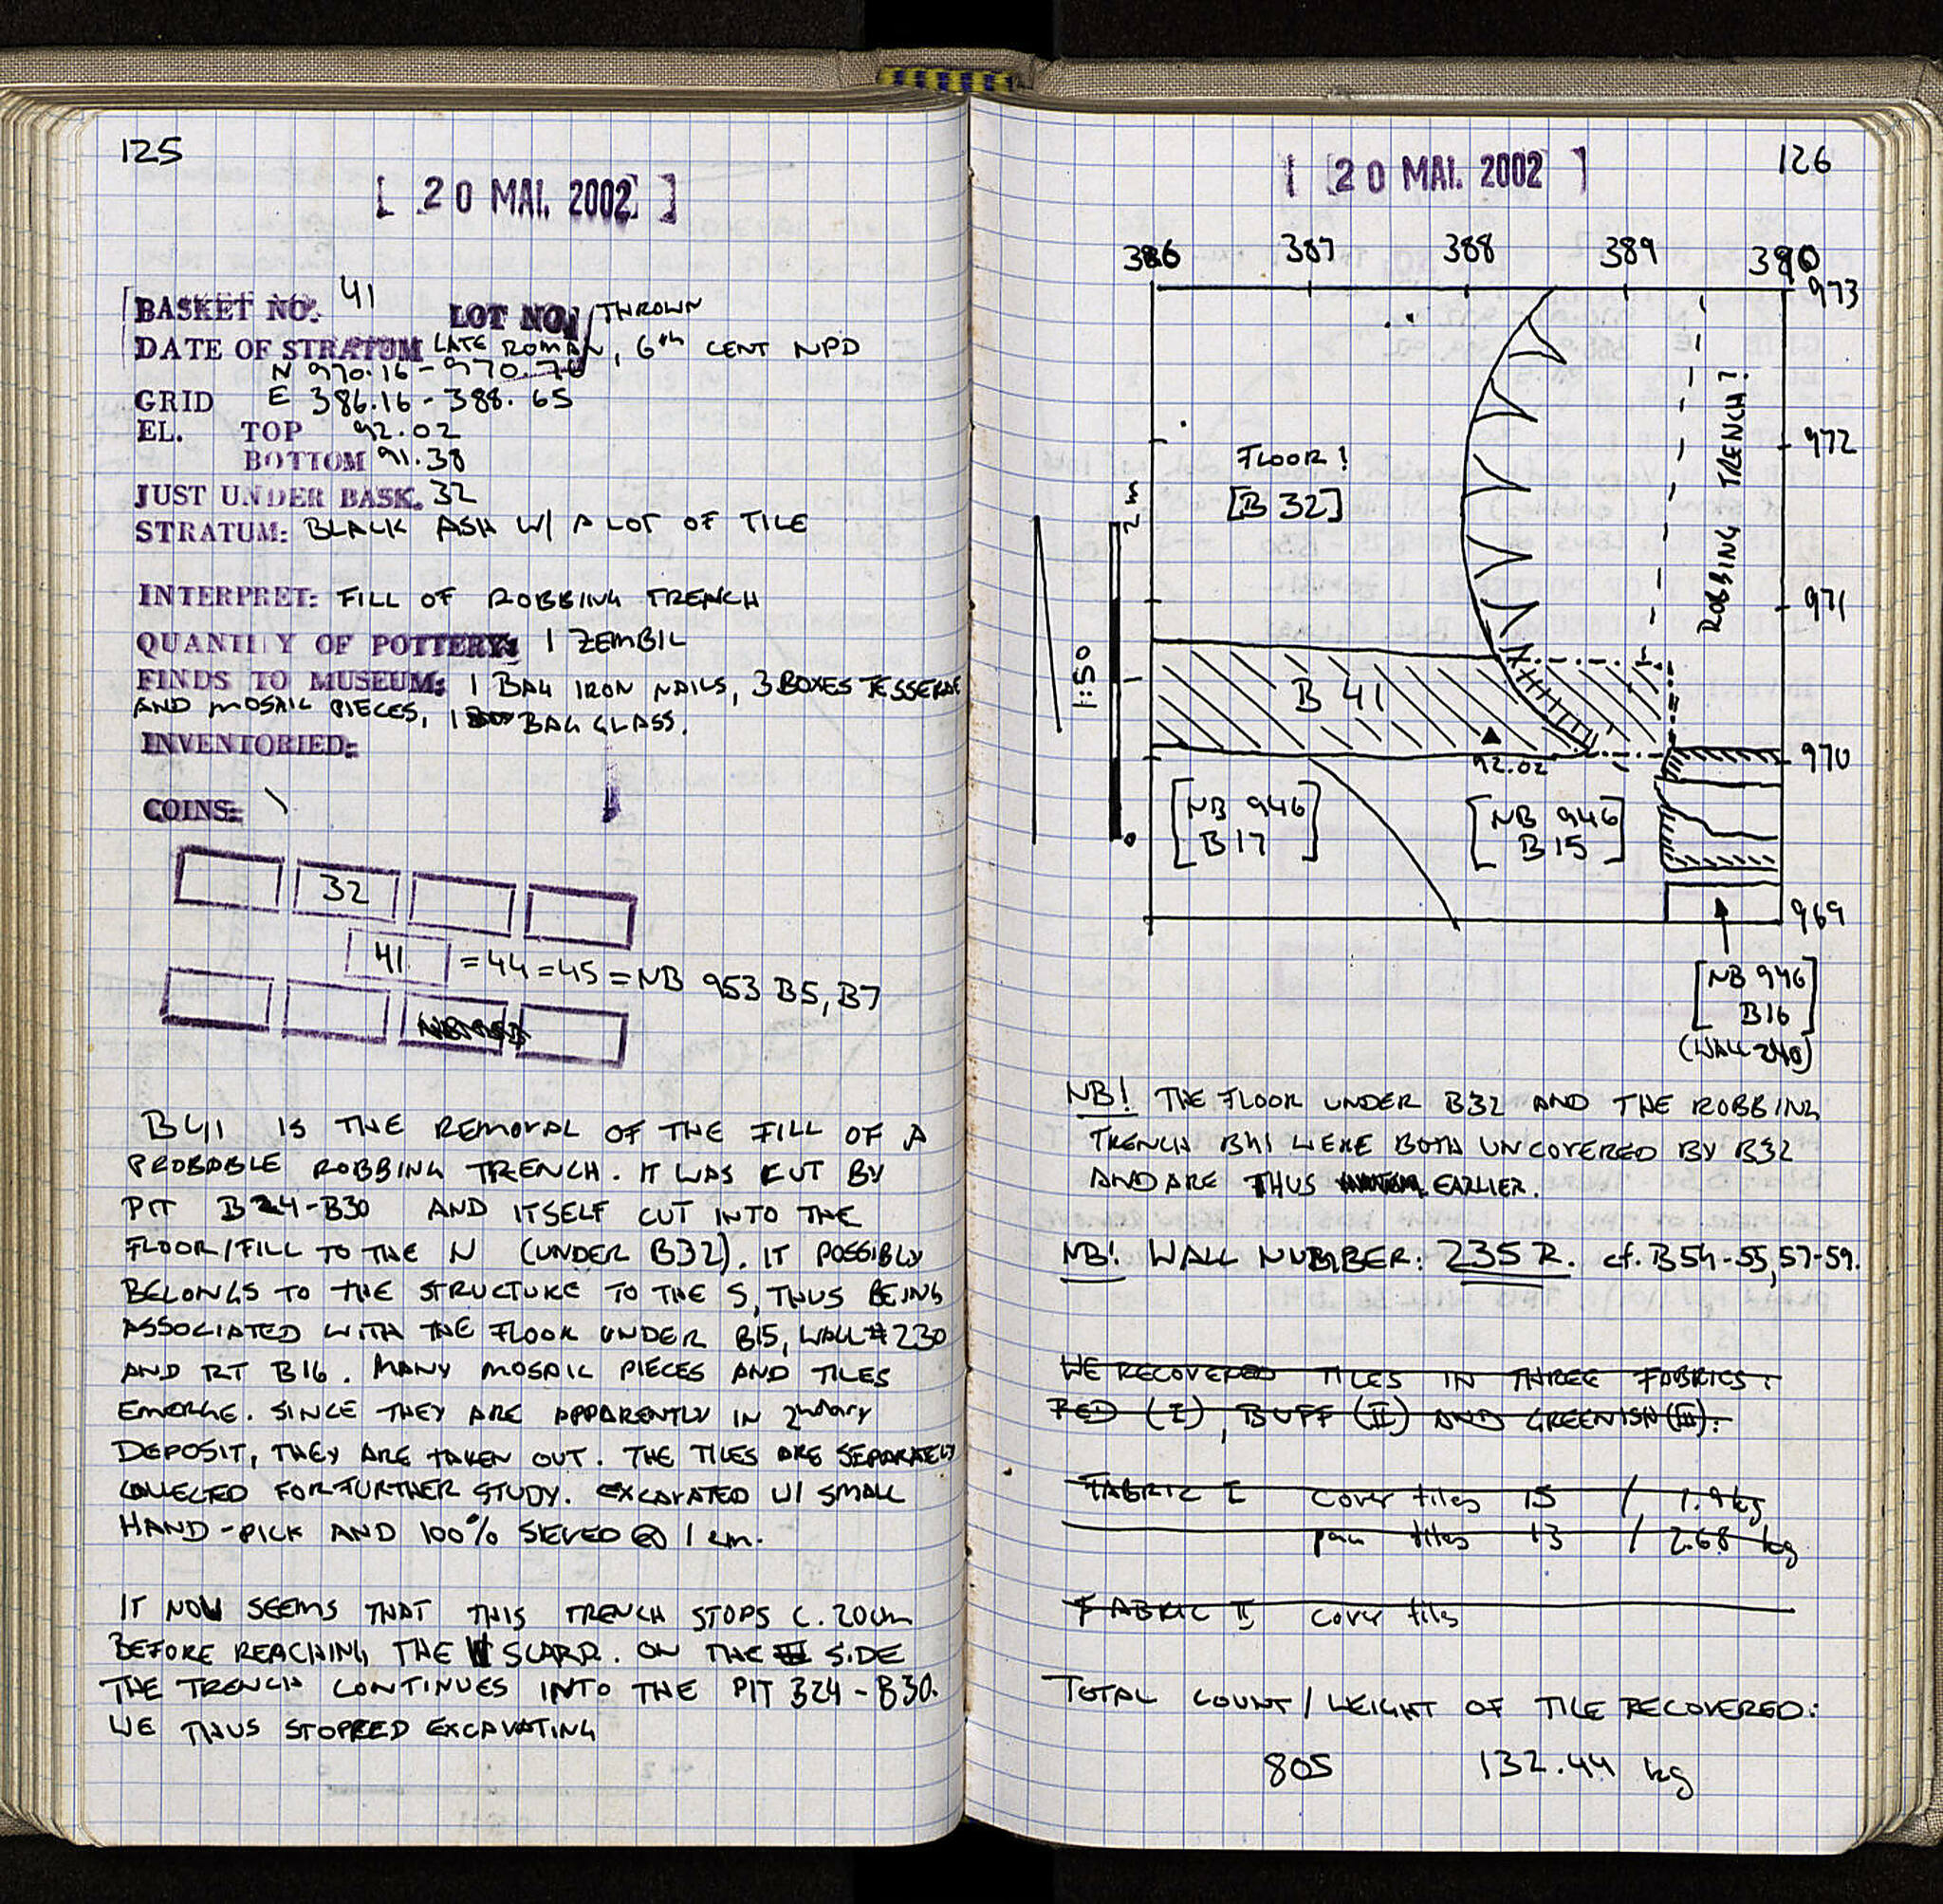 125
[ 20 MAI. 2002 ]
BASKET NO. 41 LOT NO. / THROWN
DATE OF STRATUM LATE ROMAN, 6th CENT NPD
N 970.16 - 970.70
GRID E 386.16 - 388.65
EL. TOP 92.02
BOTTOM 91.38
JUST UNDER BASK. 32
STRATUM: BLACK ASH W/ A LOT OF TILE
INTERPRET: FILL OF ROBBING TRENCH
QUANTITY OF POTTERY: 1 ZEMBIL
FINDS TO MUSEUM: 1 BAG IRON NAILS, 3 BOXES TESSERAE
AND MOSAIC PIECES, 1 BAG GLASS.
INVENTORIED:
COINS: \
32
41 = 44 = 45 = NB 953 B5, B7
B41 IS THE REMOVAL OF THE FILL OF A
PROBABLE ROBBING TRENCH. IT WAS CUT BY
PIT B24-B30 AND ITSELF CUT INTO THE
FLOOR/FILL TO THE N (UNDER B32). IT POSSIBLY
BELONGS TO THE STRUCTURE TO THE S, THUS BEING
ASSOCIATED WITH THE FLOOR UNDER B15, WALL # 230
AND RT B16. MANY MOSAIC PIECES AND TILES
EMERGE. SINCE THEY ARE APPARENTLY IN 2ndary
DEPOSIT, THEY ARE TAKEN OUT. THE TILES ARE SEPARATELY
COLLECTED FOR FURTHER STUDY. EXCAVATED W/ SMALL
HAND-PICK AND 100% SIEVED @ 1 cm.
IT NOW SEEMS THAT THIS TRENCH STOPS C. 20cm
BEFORE REACHING THE W SCARP. ON THE E SIDE
THE TRENCH CONTINUES INTO THE PIT B24-B30.
WE THUS STOPPED EXCAVATING
126
[ 20 MAI. 2002 ]
386 387 388 389 390
973
972
ROBBING TRENCH?
FLOOR!
[B 32]
2m
971
1:50
B 41
970
92.02
[NB 946 B17]
[NB 946 B15]
0
969
[NB 946
B16]
(WALL 240)
NB! THE FLOOR UNDER B32 AND THE ROBBING
TRENCH B41 WERE BOTH UNCOVERED BY B32
AND ARE THUS EARLIER.
NB! WALL NUMBER: 235 R. cf. B54-55, 57-59.
WE RECOVERED TILES IN THREE FABRICS:
RED (I), BUFF (II) AND GREENISH (III).
FABRIC I cover tiles 15 / 1.9 kg
pan tiles 13 / 2.68 kg
FABRIC II cover tiles
TOTAL COUNT / WEIGHT OF TILE RECOVERED:
805 132.44 kg